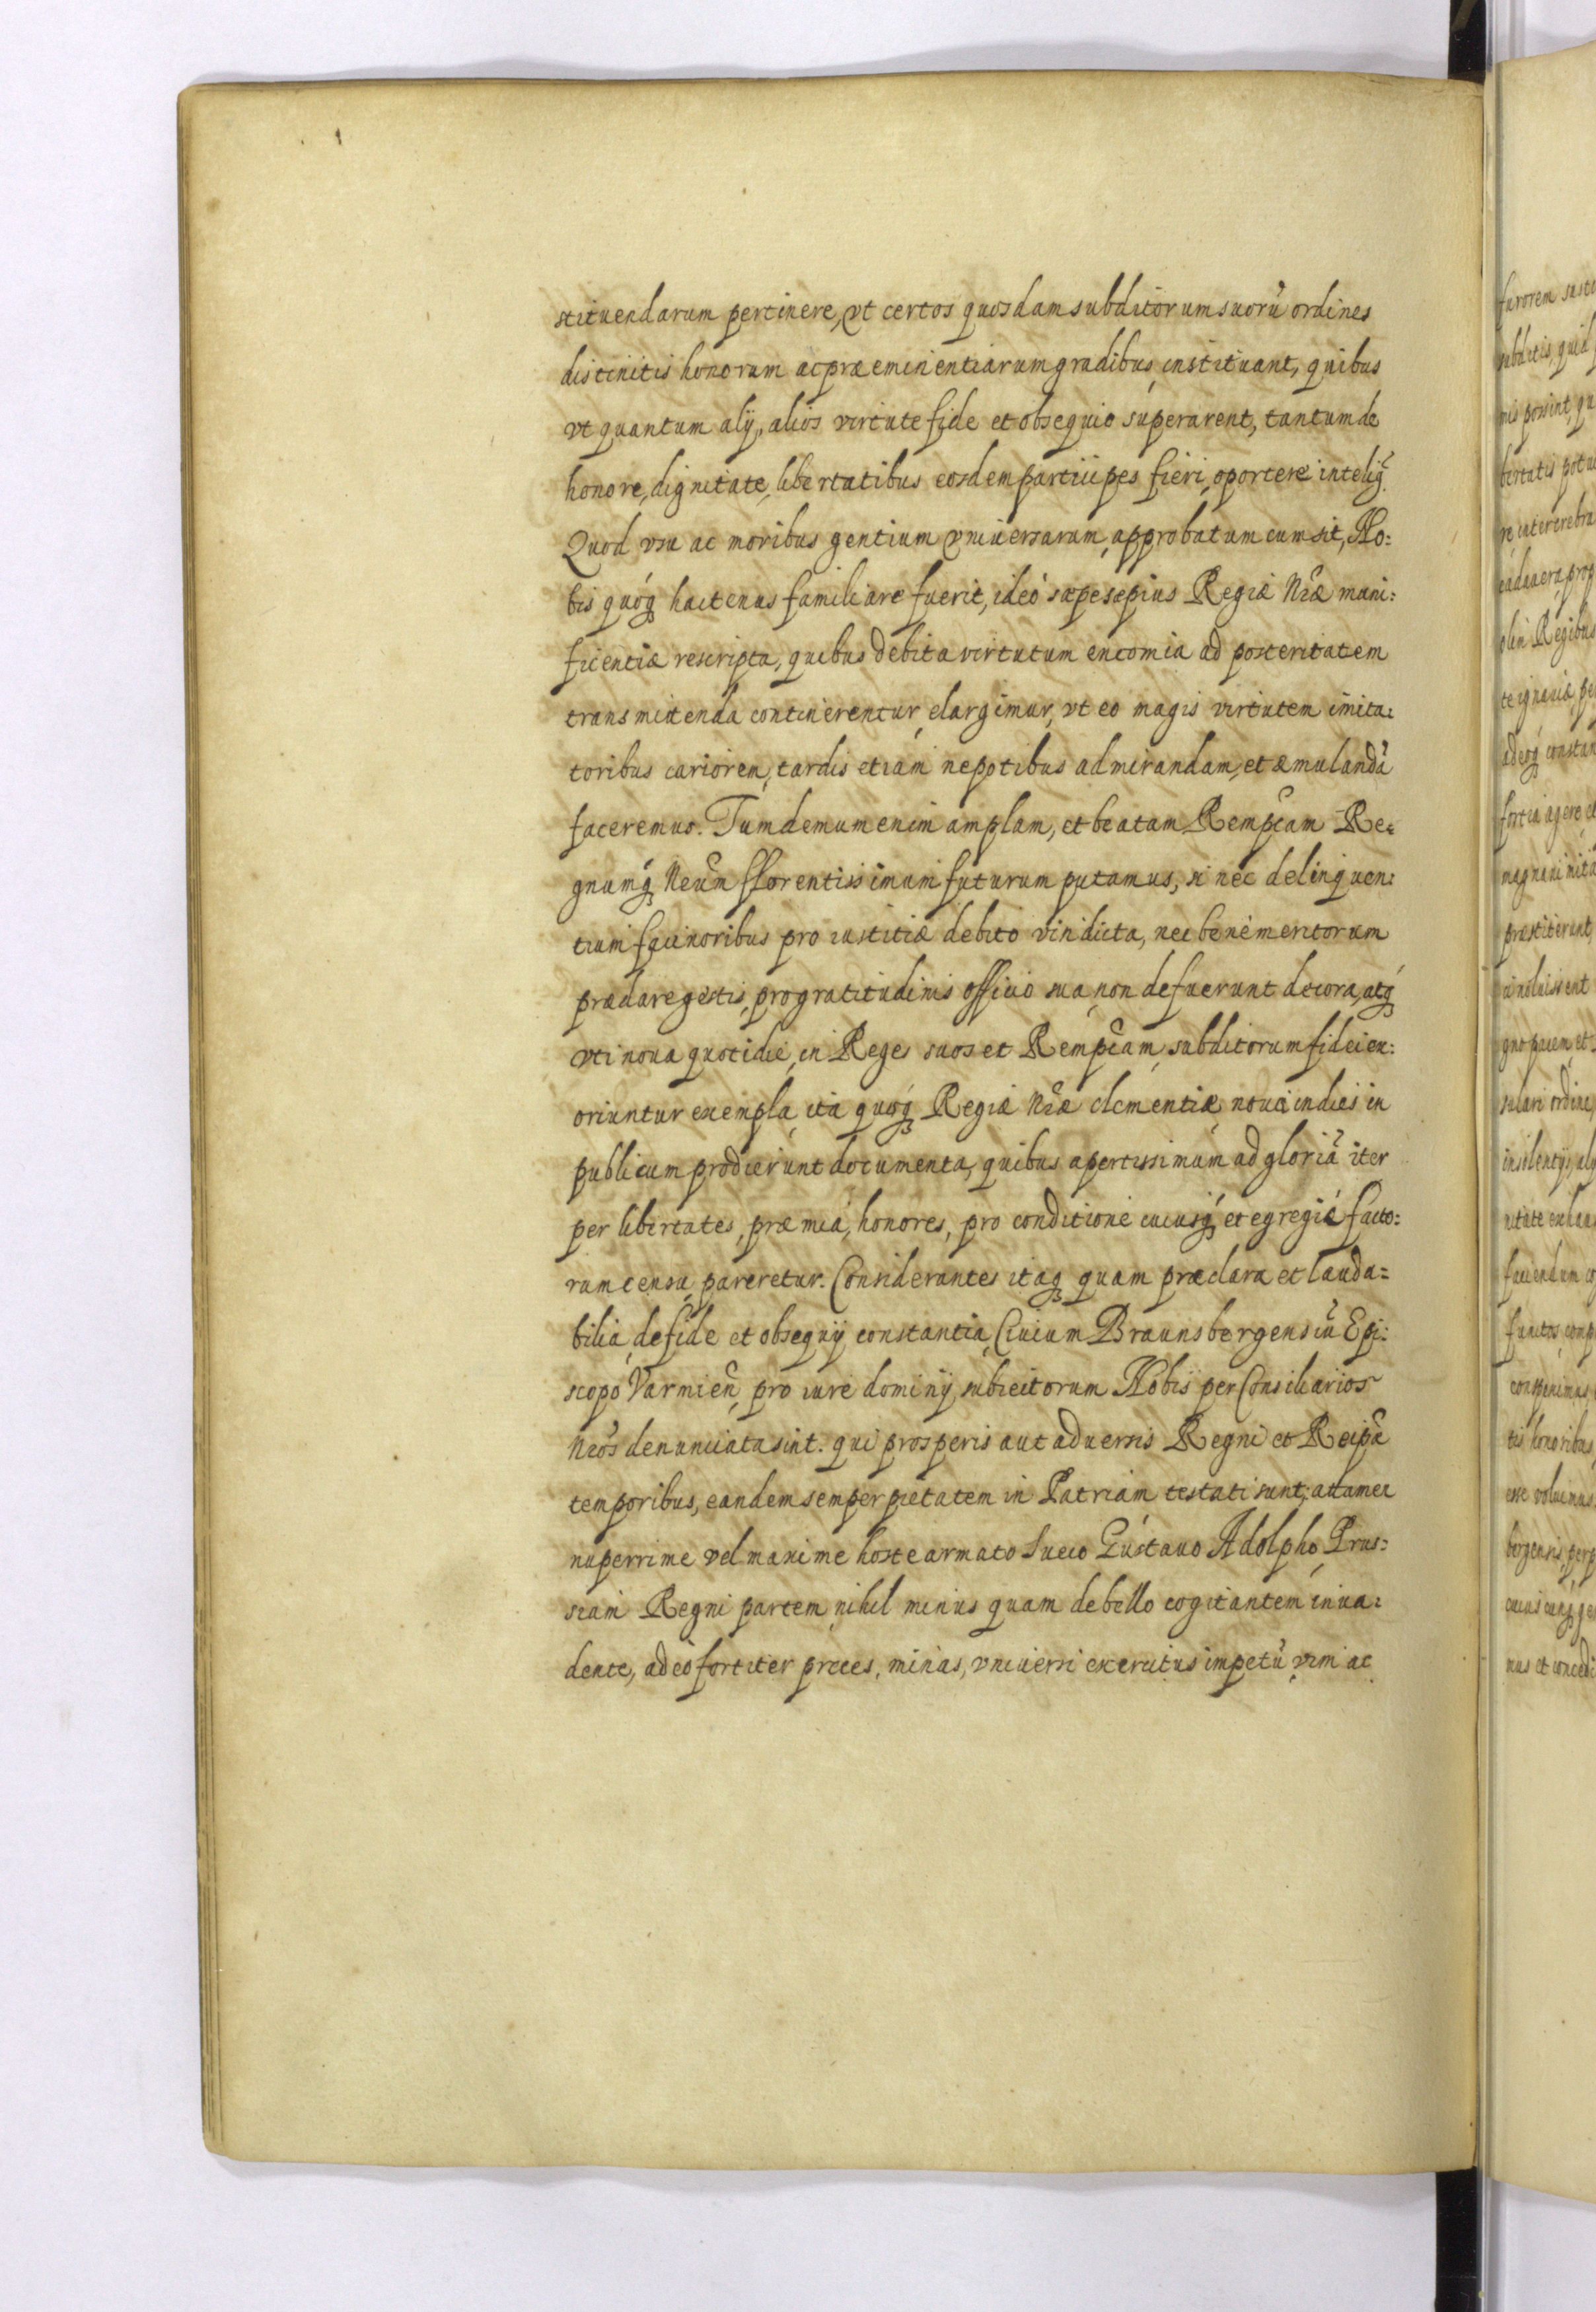 stituendarum pertinere, vt certos quosdam subditorum suorũ ordines
distinctis honorum ac præeminentiarum gradibus, instituant, quibus
vt quantum alij, alios virtute fide et obsequio superarent, tantum de
honore, dignitate, libertatibus eosdem participes fieri, oportere intelig̃
Quod vsu ac moribus gentium vniuersarum, approbatum cum sit, No:
bis quóq hactenus familiare fuerit, ideo sæpe sæpius Regiæ Nræ muni:
ficentiæ rescripta, quibus debita virtutum encomia ad posteritatem
transmittenda continerentur, elargimur, vt eo magis virtutem imita:
toribus cariorem, tardis etiam nepotibus admirandam, et æmulandã
faceremus. Tum demum enim amplam, et beatam Rempcam Re:
gnumq́ Nrũm fflorentissimum futurum putamus, si nec delinquen:
tium facinoribus pro iustitiæ debito vindicta, nec benemeritorum
præclare gestis, pro gratitudinis officio sua, non defuerunt decora, atq́
vti noua quotidie, in Reges suos et Rempcam, subditorum fidei ex:
oriuntur exempla, ita quoq́ Regiæ Nræ clementiæ, noua indies in
publicum prodierunt documenta, quibus apertissimum ad gloriã iter
per libertates, præmia, honores, pro conditione cuiusq́, et egregiè facto:
rum censu, pareretur. Considerantes itaq quam præclara et lauda=
bilia, de fide et obsequij constantia, Ciuium Braunsbergensiũ Epi:
scopo Varmieñ, pro iure dominij, subiectorum Nobis per Consiliarios
Nros denunciata sint. qui prosperis aut aduersis Regni et Reipcæ
temporibus, eandem semper pietatem in Patriam testati sunt, attamen
nuperrime vel maxime hoste armato Sueco Gustauo Adolpho Prus:
siam Regni partem, nihil minus quam de bello cogitantem inua:
dente, adeo fortiter preces, minas, vniuersi exercitus impetũ, vim ac